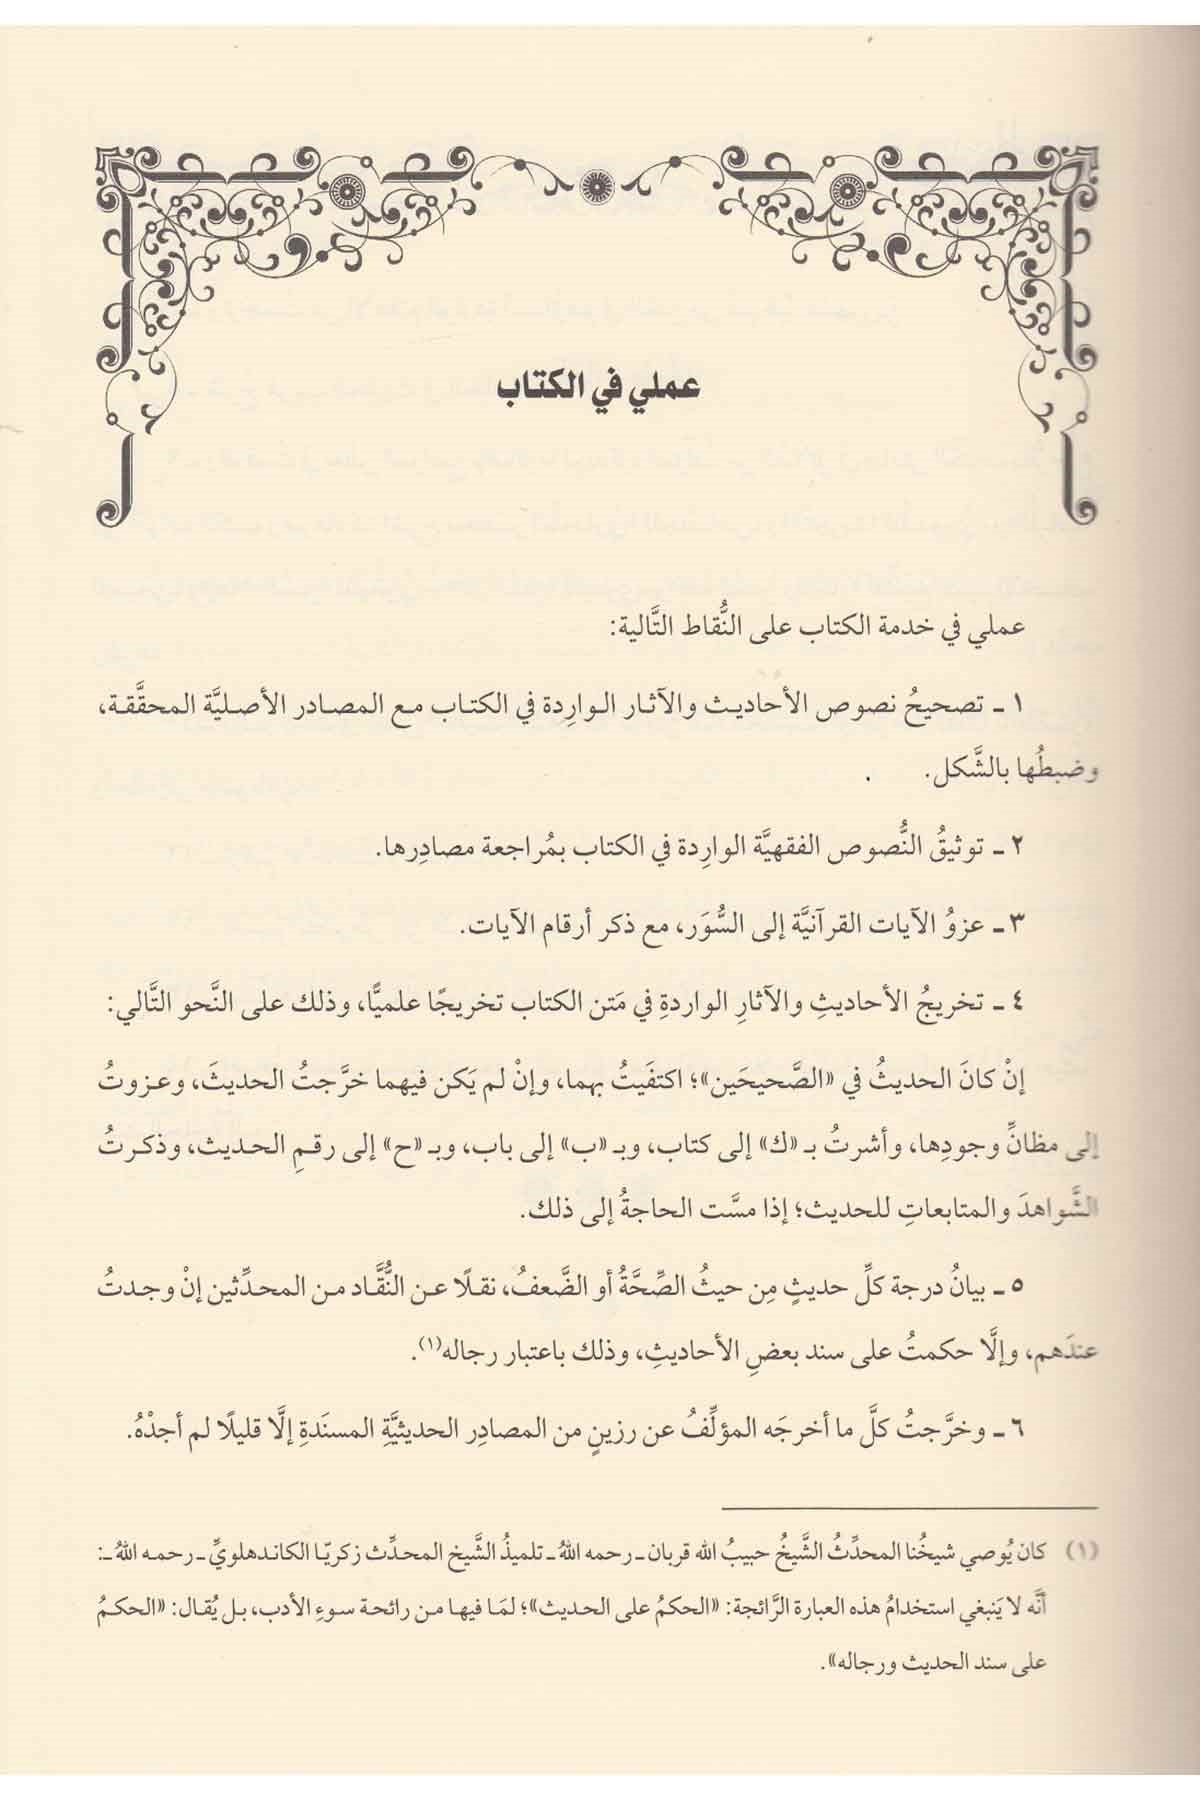 عملي في الكتاب
عملي في خدمة الكتاب على النُّقاط التَّالية:
١ ـ تصحيحُ نصوص الأحاديث والآثار الوارِدة في الكتاب مع المصادر الأصليَّة المحقَّقة،
وضبطُها بالشَّكل.
٢ ـ توثيقُ النُّصوص الفقهيَّة الوارِدة في الكتاب بمُراجعة مصادِرها.
٣ ـ عزوُ الآيات القرآنيَّة إلى السُّوَر، مع ذكر أرقام الآيات.
٤ ـ تخريجُ الأحاديثِ والآثارِ الواردةِ في مَتن الكتاب تخريجًا علميًّا، وذلك على النَّحو التَّالي:
إنْ كانَ الحديثُ في «الصَّحيحَين»؛ اكتفَيتُ بهما، وإنْ لم يَكن فيهما خرَّجتُ الحديثَ، وعزوتُ
إلى مظانِّ وجودِها، وأشرتُ بـ «ك» إلى كتاب، وبـ «ب» إلى باب، وبـ «ح» إلى رقمِ الحديث، وذكرتُ
الشَّواهدَ والمتابعاتِ للحديث؛ إذا مسَّت الحاجةُ إلى ذلك.
٥ ـ بيانُ درجة كلِّ حديثٍ مِن حيثُ الصِّحَّةُ أو الضَّعفُ، نقلًا عن النُّقَّاد من المحدِّثين إنْ وجدتُ
عندَهم، وإلَّا حكمتُ على سند بعضِ الأحاديثِ، وذلك باعتبار رجاله(١).
٦ ـ وخرَّجتُ كلَّ ما أخرجَه المؤلِّفُ عن رزينٍ من المصادِر الحديثيَّةِ المسنَدةِ إلَّا قليلًا لم أجدْهُ.
(١) كان يُوصي شيخُنا المحدِّثُ الشَّيخُ حبيبُ الله قربان ـ رحمه اللهُ ـ تلميذُ الشَّيخ المحدِّث زكريّا الكاندهلويِّ ـ رحمه اللهُ ـ:
أنَّه لا يَنبغي استخدامُ هذه العبارة الرَّائجة: «الحكمُ على الحديث»؛ لمَا فيها من رائحة سوءِ الأدب، بل يُقال: «الحكمُ
على سند الحديث ورجاله».